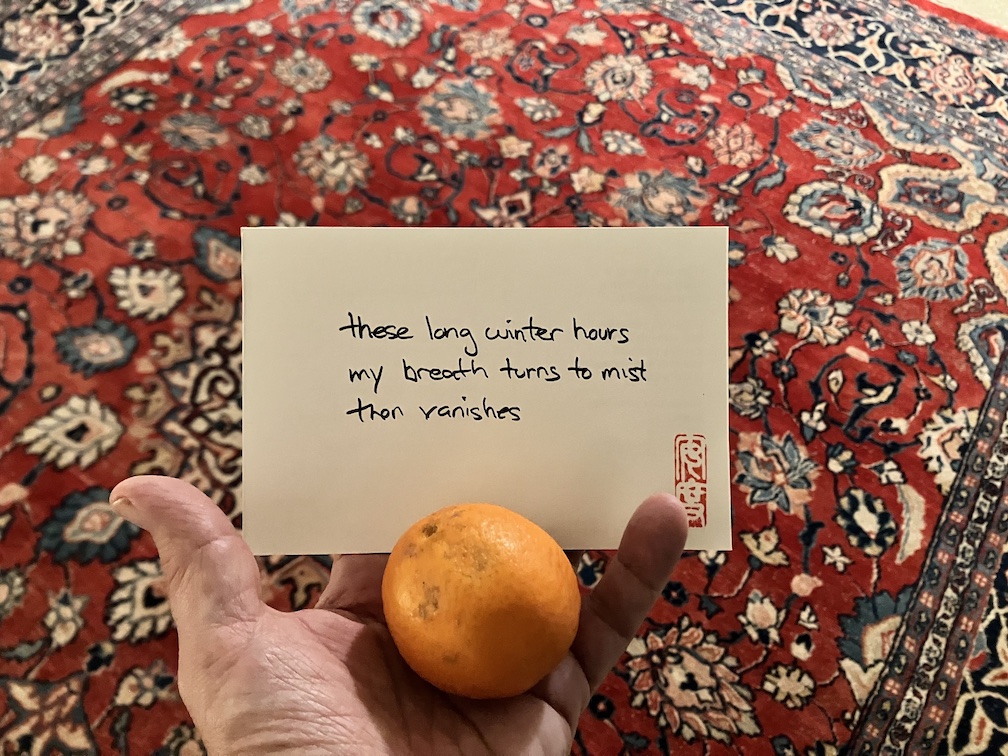 these long winter hours
my breath turns to mist
then vanishes